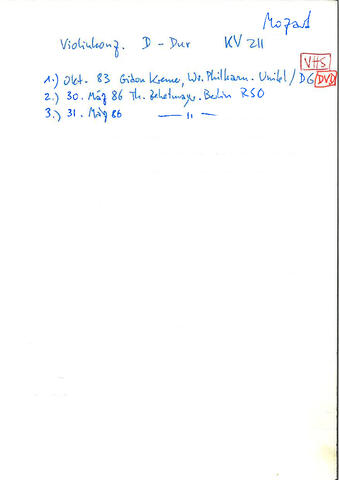 Mozart
Violinkonz. D-Dur KV 211
VHS
1.) Okt. 83 Gidon Kremer, Wr. Philharm. Unitel / DG DVD
2.) 30. März 86 Th. Zehetmayr. Berlin RSO
3.) 31. März 86 — " —